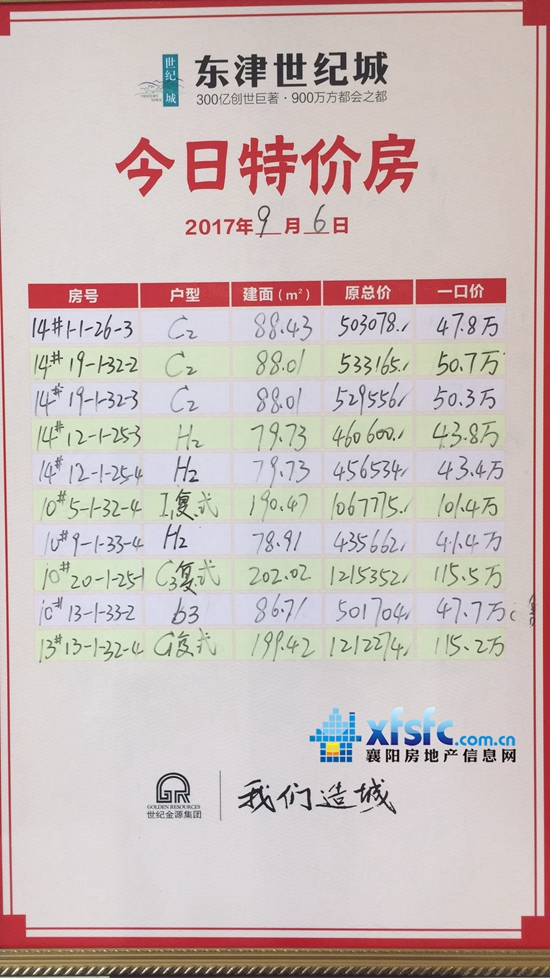 世纪城 东津世纪城
300亿创世巨著·900万方都会之都
今日特价房
2017年9月6日
房号 户型 建面(m²) 原总价 一口价
14#1-1-26-3 C2 88.43 503078. 47.8万
14#19-1-32-2 C2 88.01 533165. 50.7万
14#19-1-32-3 C2 88.01 529556. 50.3万
14#12-1-25-3 H2 79.73 460600. 43.8万
14#12-1-25-4 H2 79.73 456534. 43.4万
10#5-1-32-4 I1复式 190.47 1067775. 101.4万
10#9-1-33-4 H2 78.91 435662. 41.4万
10#20-1-25-1 C3复式 202.02 1215352. 115.5万
10#13-1-33-2 b3 86.71 501704. 47.7万
13#13-1-32-4 G复式 199.42 1212274. 115.2万
xfsfc.com.cn
襄阳房地产信息网
GR
GOLDEN RESOURCES
世纪金源集团
我们造城